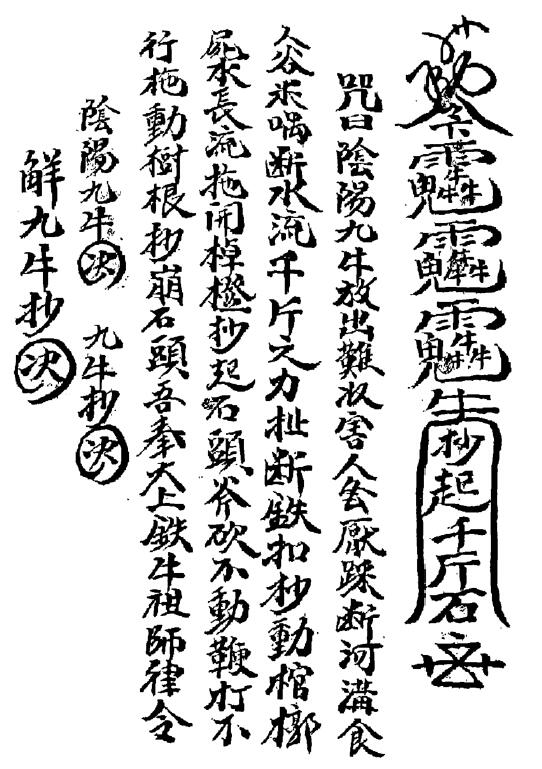 抄起千斤石
咒曰陰陽九牛放出難收害人厭踩断河溝食
人谷米喝断水流千斤之力扯断鉄扣抄動棺槨
屍水長流拖開棹橙抄起石頭斧砍不動鞭打不
行拖動樹根抄崩石頭吾奉太上鉄牛祖師律令
陰陽九牛次 九牛抄次
觧九牛抄次